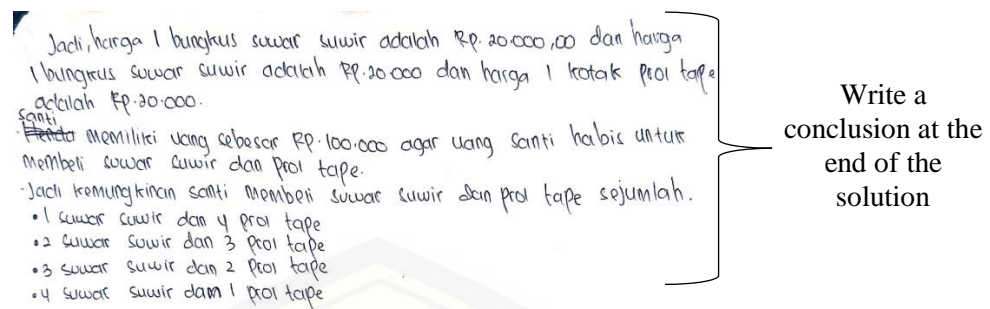 Jadi, harga 1 bungkus suwar suwir adalah Rp. 20.000,00 dan harga
1 bungkus suwar suwir adalah Rp. 20.000 dan harga 1 kotak prol tape
adalah Rp. 20.000.
Santi
Hendo memiliki uang sebesar Rp. 100.000 agar uang Santi habis untuk
membeli suwar suwir dan prol tape.
- Jadi kemungkinan santi membeli suwar suwir dan prol tape sejumlah.
• 1 suwar suwir dan 4 prol tape
• 2 suwar suwir dan 3 prol tape
• 3 suwar suwir dan 2 prol tape
• 4 suwar suwir dam 1 prol tape
Write a
conclusion at the
end of the
solution